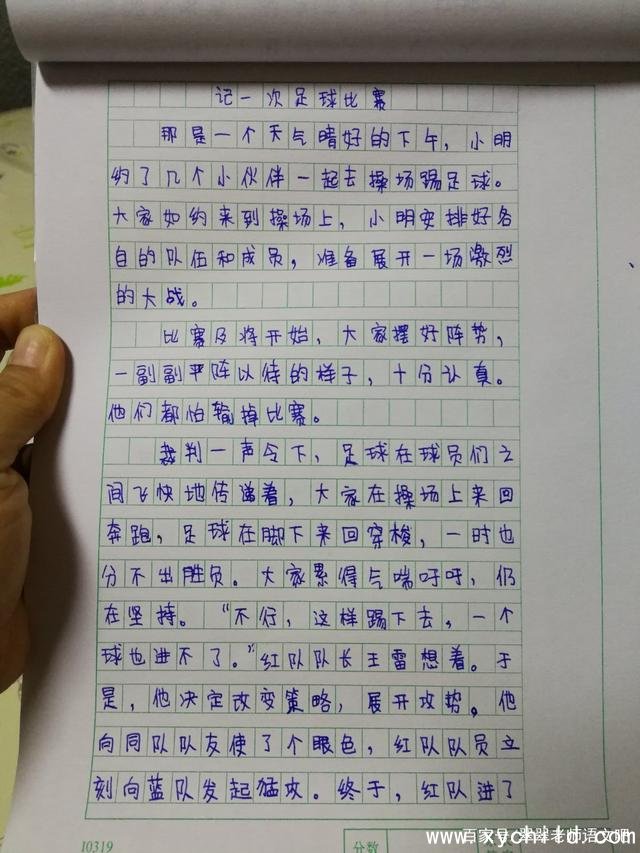 记一次足球比赛
那是一个天气晴好的下午，小明
约了几个小伙伴一起去操场踢足球。
大家如约来到操场上，小明安排好各
自的队伍和成员，准备展开一场激烈
的大战。
比赛及将开始，大家摆好阵势，
一副副严阵以待的样子，十分认真。
他们都怕输掉比赛。
裁判一声令下，足球在球员们之
间飞快地传递着，大家在操场上来回
奔跑，足球在脚下来回穿梭，一时也
分不出胜负。大家累得气喘吁吁，仍
在坚持。“不行，这样踢下去，一个
球也进不了。”红队队长王雷想着。于
是，他决定改变策略，展开攻势。他
向同队队友使了个眼色，红队队员立
刻向蓝队发起猛攻。终于，红队进了
10319
分数
www.xychild.com